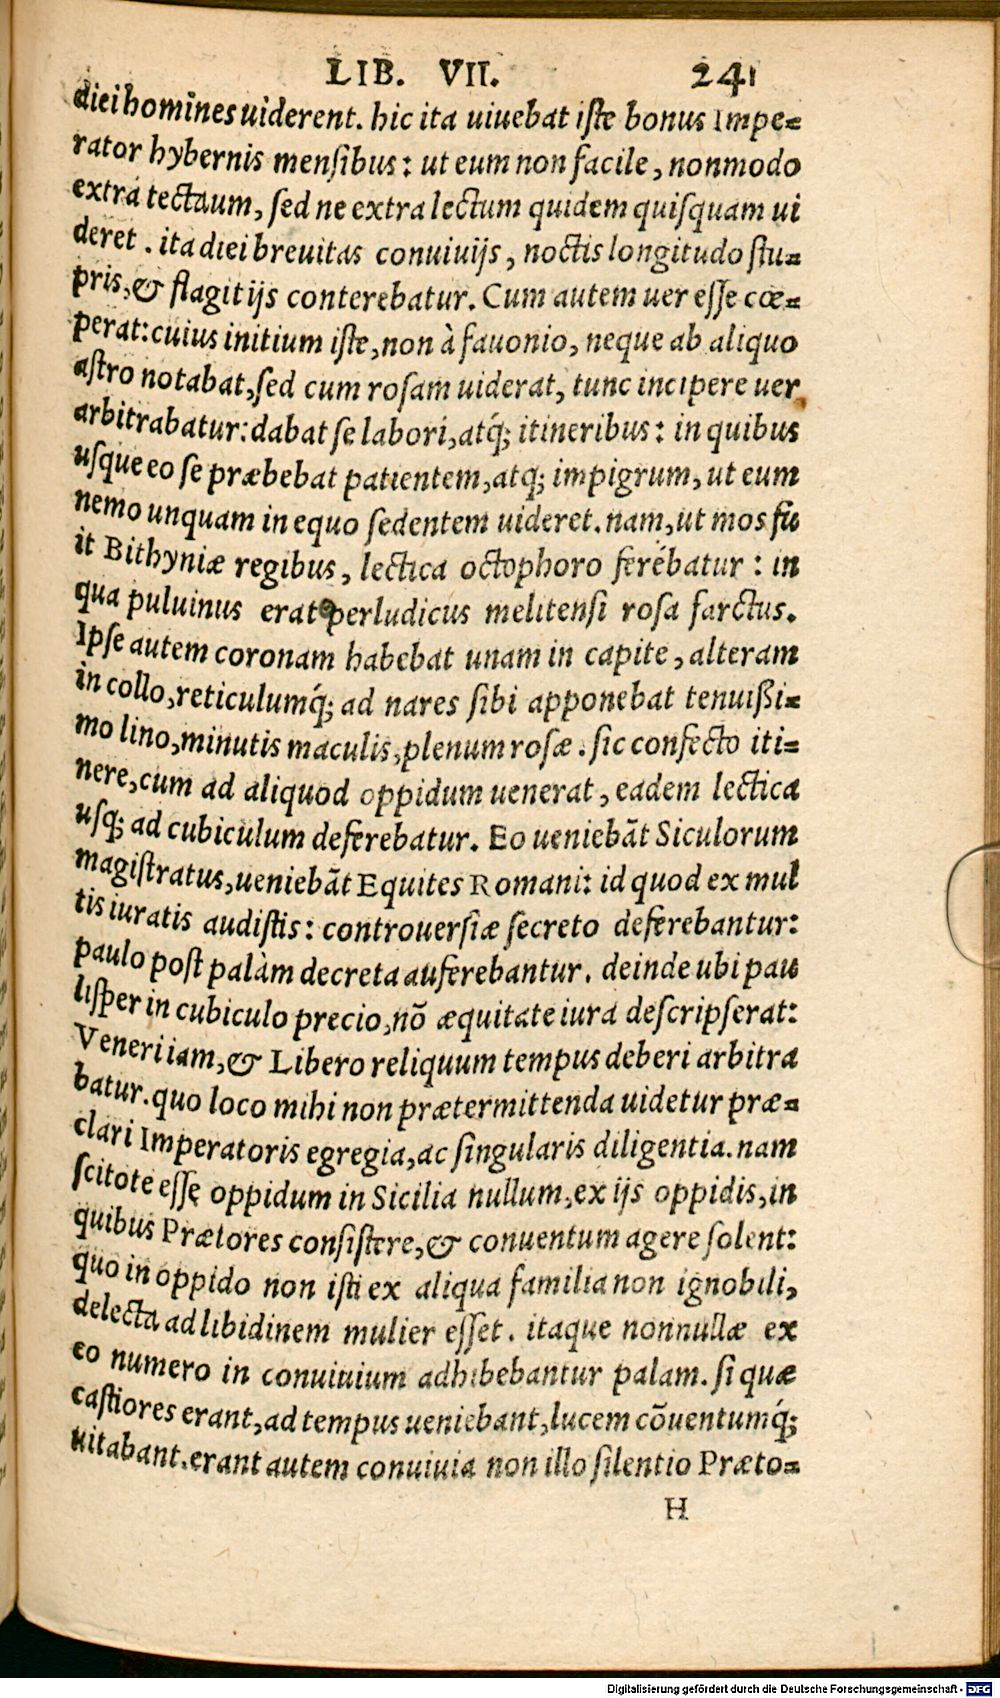 LIB. VII. 241
diei homines uiderent. hic ita uiuebat iſte bonus Impe=
rator hybernis menſibus: ut eum non facile, nonmodo
extra tectaum, ſed ne extra lectum quidem quiſquam ui
deret. ita diei breuitas conuiuijs, noctis longitudo ſtu=
pris, & flagitijs conterebatur. Cum autem uer eſſe cœ=
perat: cuius initium iſte, non à fauonio, neque ab aliquo
aſtro notabat, ſed cum roſam uiderat, tunc incipere uer
arbitrabatur: dabat ſe labori, atq́; itineribus: in quibus
uſque eo ſe præbebat patientem, atq; impigrum, ut eum
nemo unquam in equo ſedentem uideret. nam, ut mos fu
it Bithyniæ regibus, lectica octophoro ferebatur: in
qua puluinus erat perludicus melitenſi roſa farctus.
Ipſe autem coronam habebat unam in capite, alteram
in collo, reticulumq́; ad nares ſibi apponebat tenuißi=
mo lino, minutis maculis, plenum roſæ. ſic confecto iti=
nere, cum ad aliquod oppidum uenerat, eadem lectica
uſq; ad cubiculum deferebatur. Eo ueniebãt Siculorum
magiſtratus, ueniebãt Equites Romani: id quod ex mul
tis iuratis audiſtis: controuerſiæ ſecreto deferebantur:
paulo poſt palàm decreta auferebantur. deinde ubi pau
liſper in cubiculo precio, nõ æquitate iura deſcripſerat:
Veneri iam, & Libero reliquum tempus deberi arbitra
batur. quo loco mihi non prætermittenda uidetur præ=
clari Imperatoris egregia, ac ſingularis diligentia. nam
ſcitote eſſe oppidum in Sicilia nullum, ex ijs oppidis, in
quibus Prætores conſiſtere, & conuentum agere ſolent:
quo in oppido non iſti ex aliqua familia non ignobili,
delecta ad libidinem mulier eſſet. itaque nonnullæ ex
eo numero in conuiuium adhibebantur palam. ſi quæ
caſtiores erant, ad tempus ueniebant, lucem cõuentumq́;
uitabant. erant autem conuiuia non illo ſilentio Præto=
H
Digitalisierung gefördert durch die Deutsche Forschungsgemeinschaft - DFG